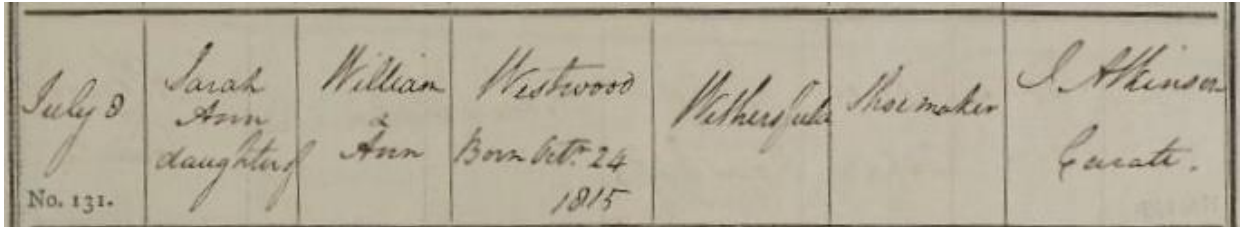 July 8
No. 131.
Sarah
Ann
daughter of
William
&
Ann
Westwood
Born Octr. 24
1815
Withersfield
Shoemaker
J. Atkinson
Curate.